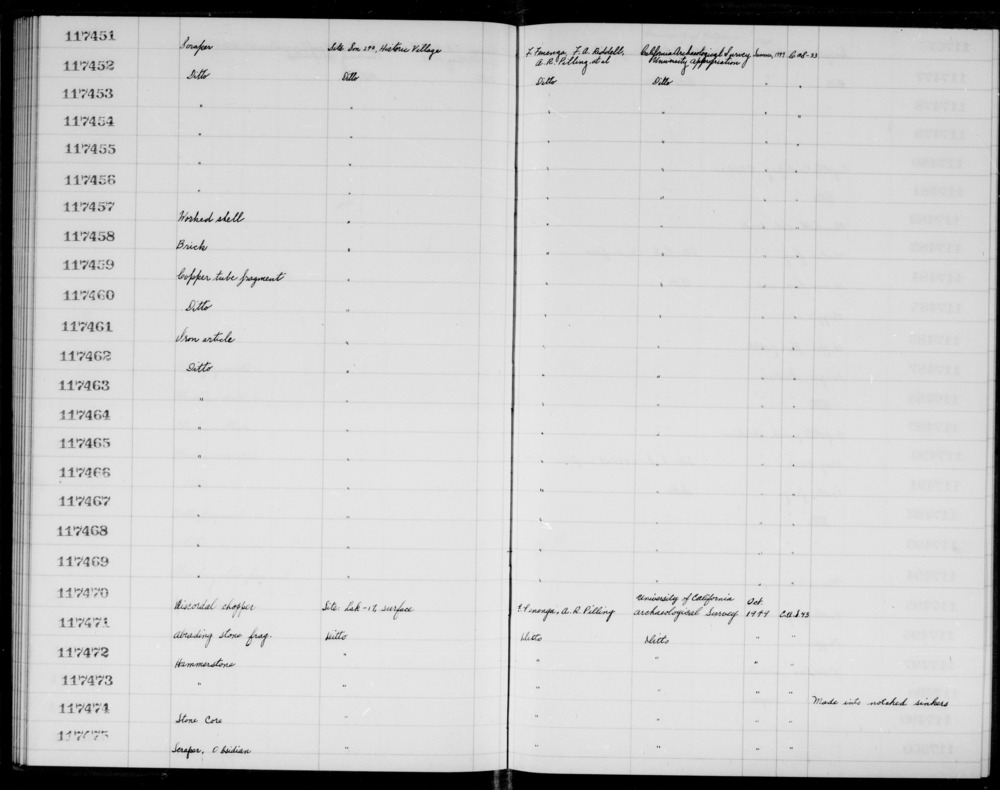 117451 Scraper Site: Son 299, Historic Village F. Fenenga, F. A. Riddell, A. R. Pilling et al California Archaeological Survey University Appropriation 
117452 Ditto Ditto Ditto Ditto " "
117453 " " " " " "
117454 " " " " " "
117455 " " " " " "
117456 " " " " " "
117457 Worked shell " " " " "
117458 Brick " " " " "
117459 Copper tube fragment " " " " "
117460 Ditto " " " " "
117461 Iron article " " " " "
117462 Ditto " " " " "
117463 " " " " " "
117464 " " " " " "
117465 " " " " " "
117466 " " " " " "
117467 " " " " " "
117468 " " " " " "
117469 " " " " " "
117470 Discordal chopper Site: Lak-12, surface F. Fenenga, A. R. Pilling University of California Archaeological Survey Oct. 1949
117471 Abrading stone frag. Ditto Ditto Ditto " "
117472 Hammerstone " " " " "
117473 " " " " " " Made into notched sinkers
117474 Stone Core " " " " "
117475 Scraper, Obsidian " " " " "